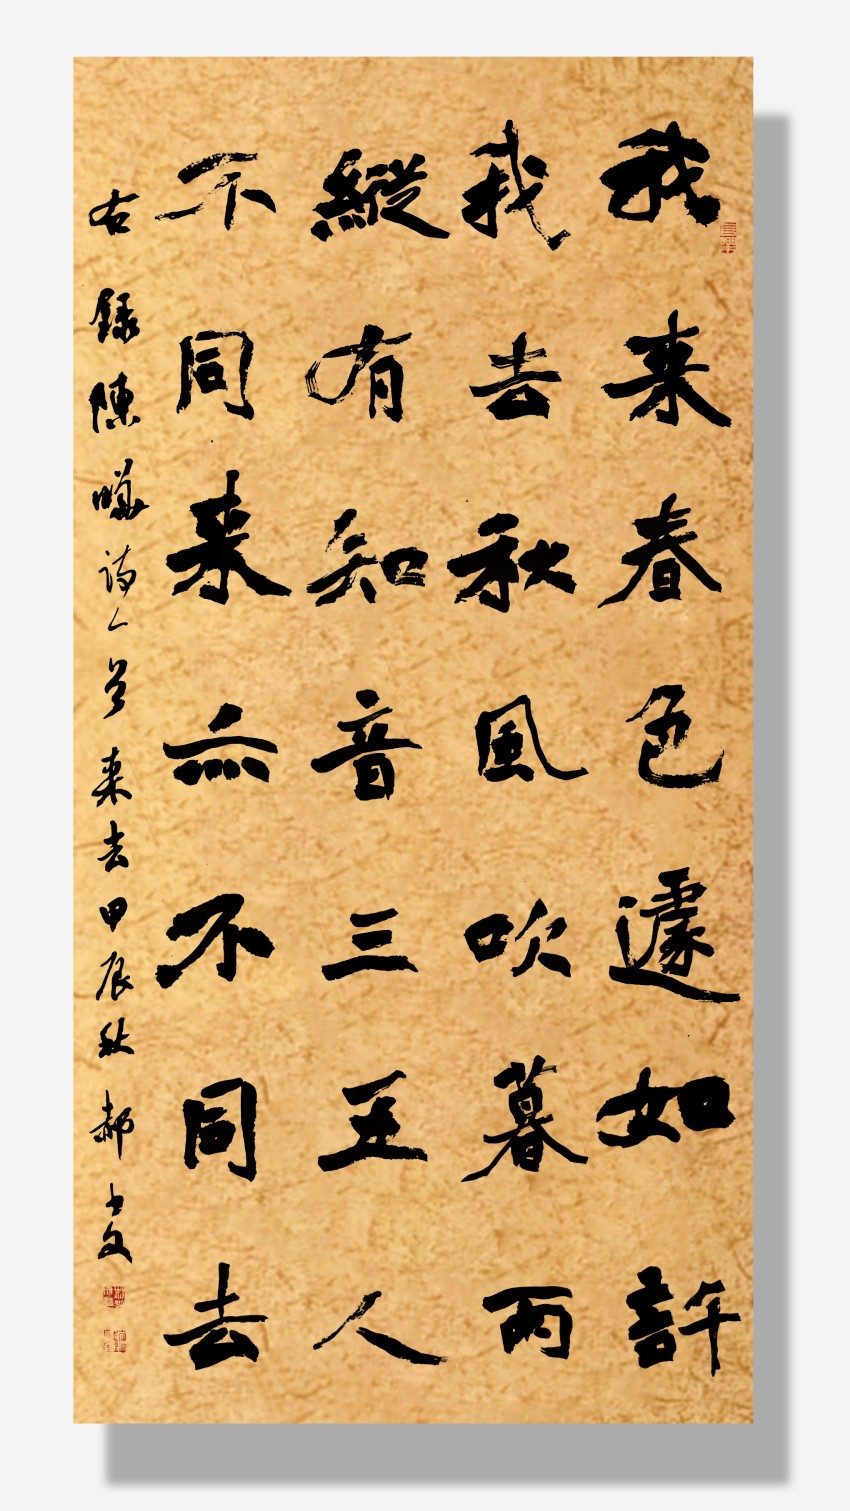 我来春色遽如許
我去秋風吹暮雨
縱有知音三五人
不同来亦不同去
右錄陳曦詩一首来去甲辰秋郝文